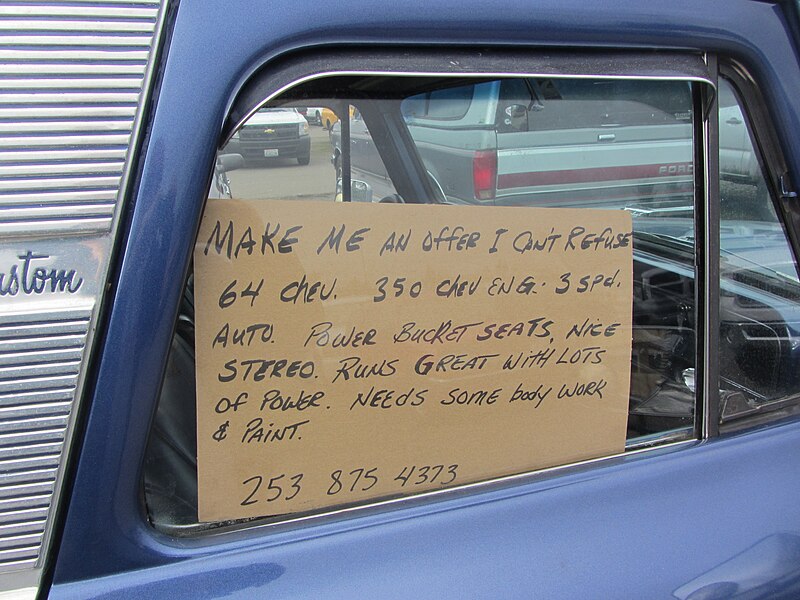 MAKE ME AN OFFER I CAN'T REFUSE
64 CHEV. 350 CHEV ENG. 3 SPd.
AUTO. POWER BUCKET SEATS, NICE
STEREO. RUNS GREAT WITH LOTS
OF POWER. NEEDS SOME body WORK
& PAINT.
253 875 4373
ustom
FORD